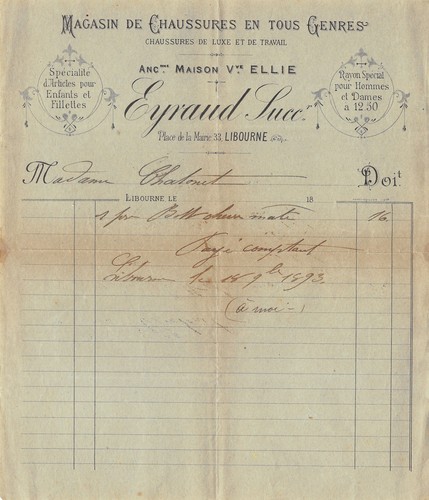 MAGASIN DE CHAUSSURES EN TOUS GENRES
CHAUSSURES DE LUXE ET DE TRAVAIL
ANC.NNE MAISON VVE ELLIE
Spécialité
d'Articles pour
Enfants et
Fillettes
Eyraud Succr.
Rayon Special
pour Hommes
et Dames
à 12.50
Place de la Mairie 33, LIBOURNE
Madame Chatonet Doit
LIBOURNE LE 18
1 pre Bott chevr mate 16
Payé comptant
Libourne le 16 9bre 1893
(à moi)